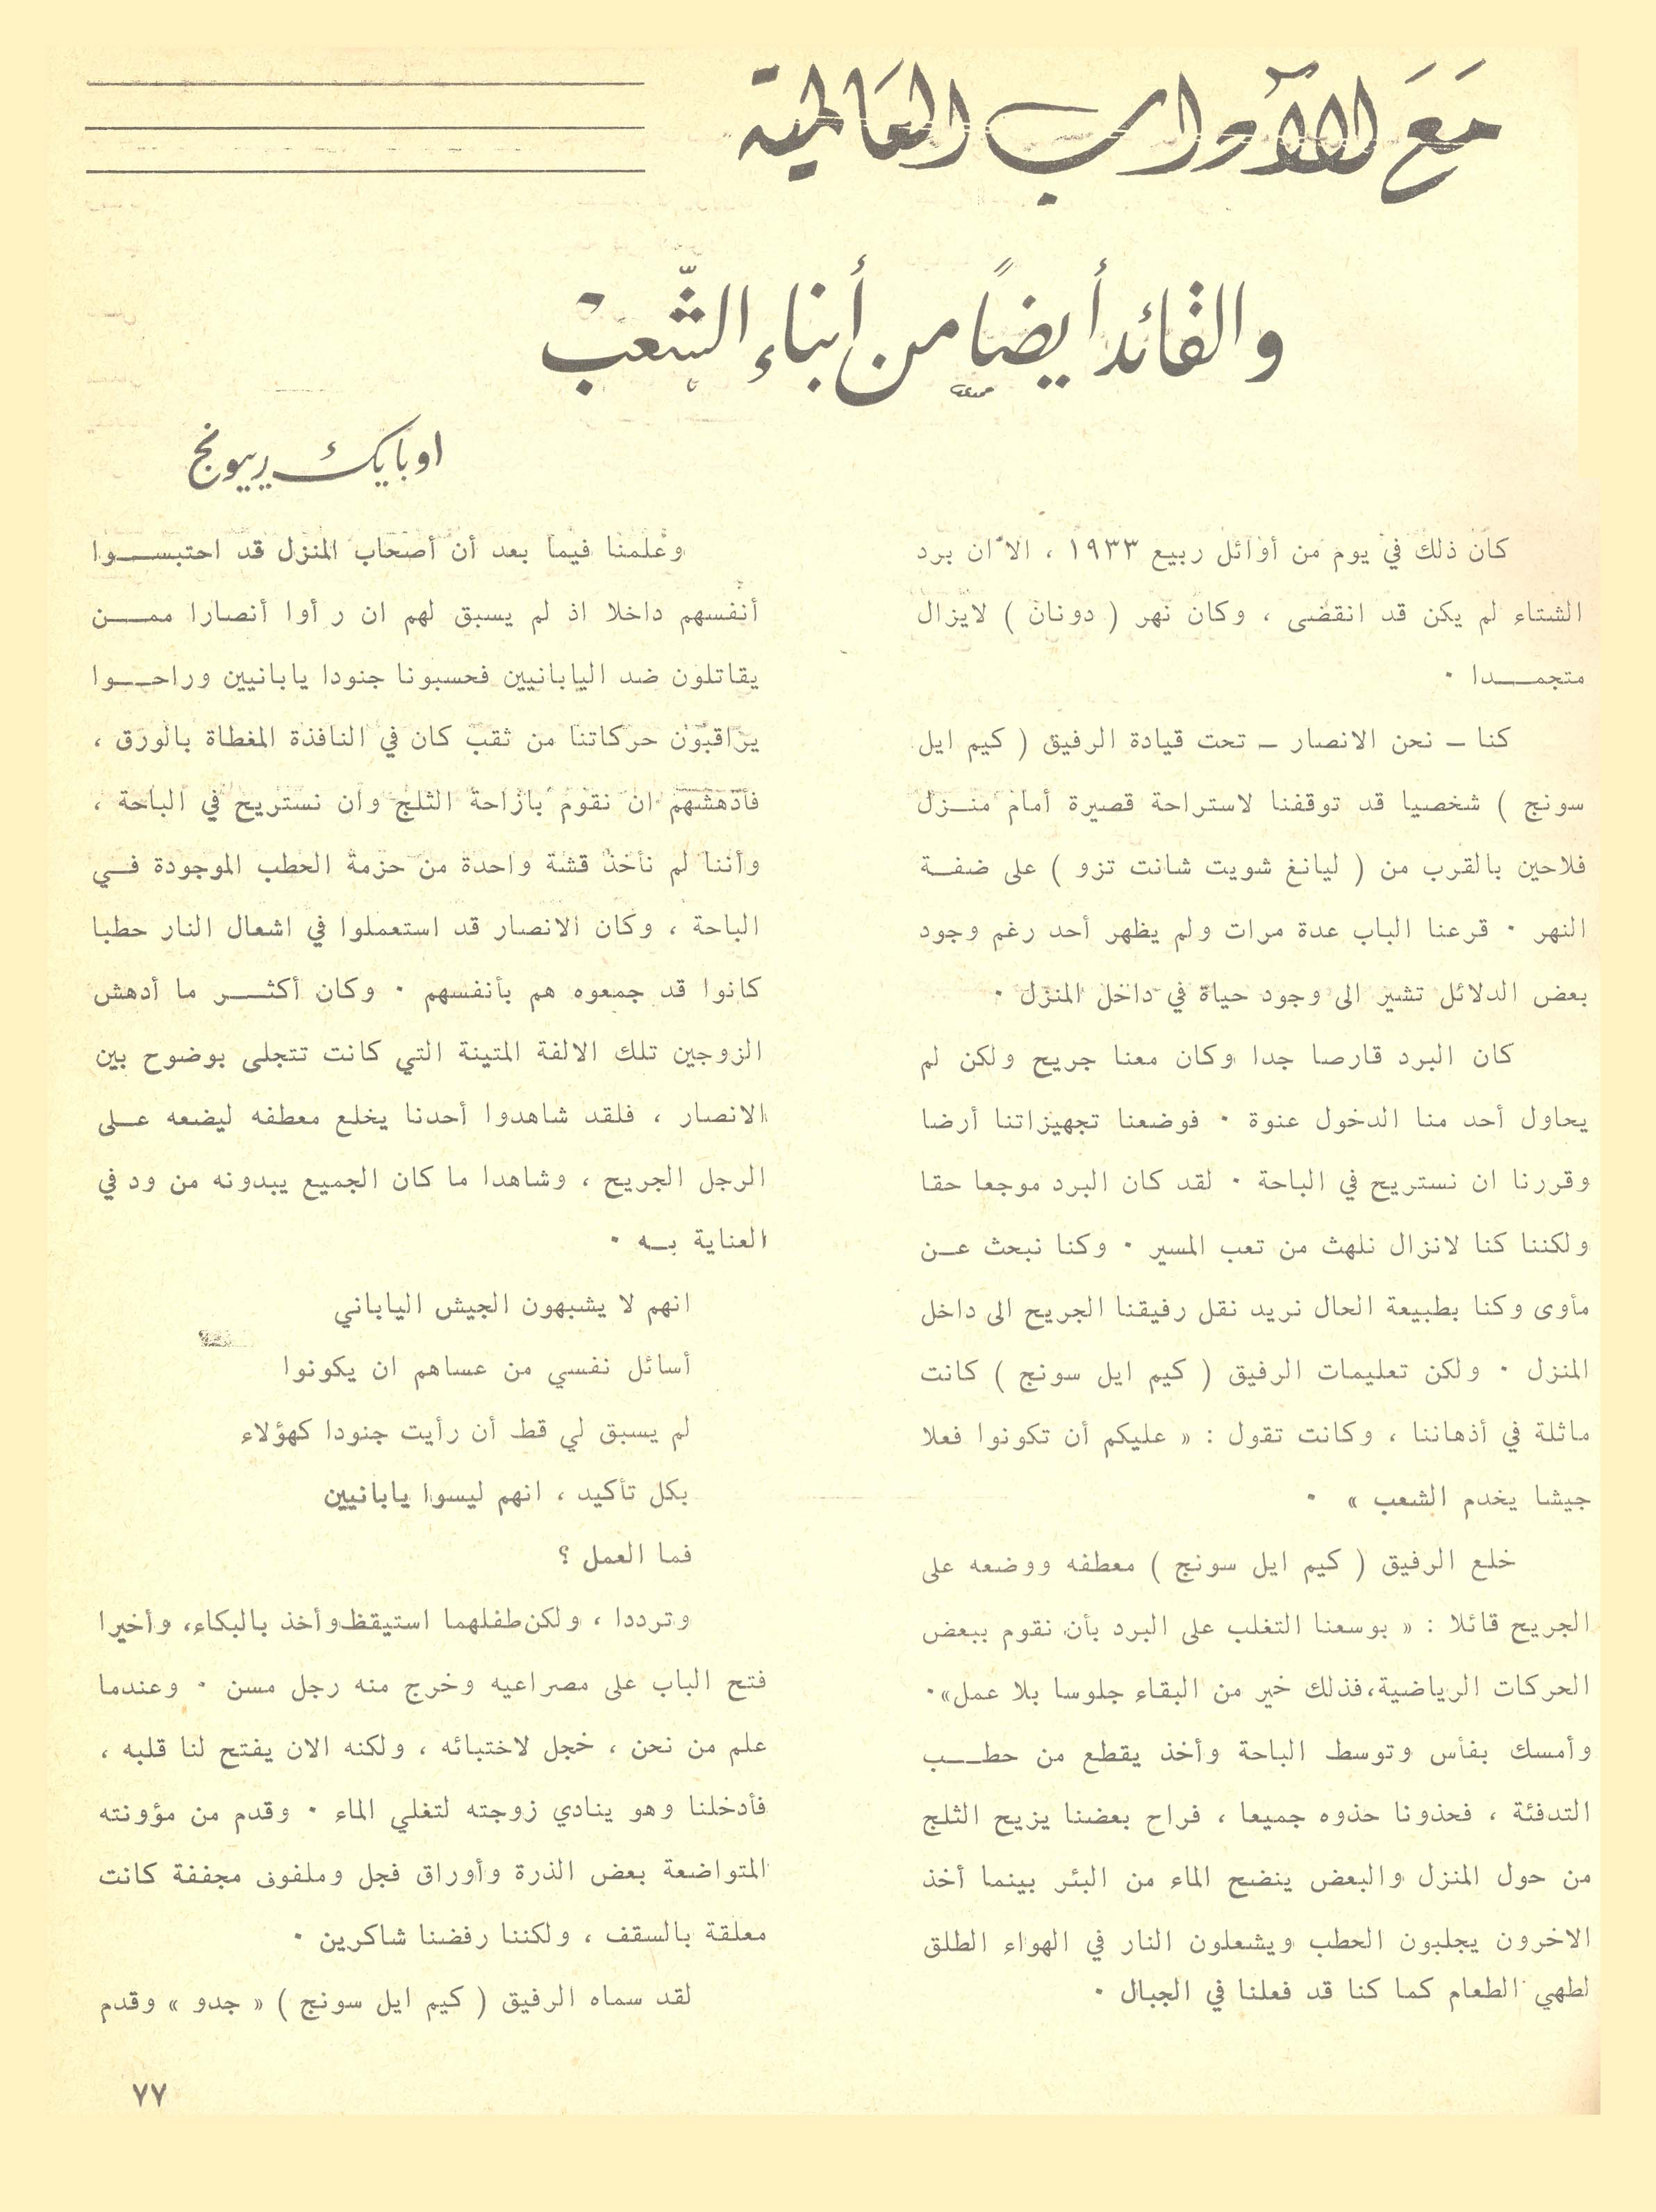 مَعَ الآداب العَالمية
والقائد أيضاً من أبناء الشّعبْ
اوبايك ريبونج
كان ذلك في يوم من أوائل ربيع ١٩٣٣ ، الا ان برد
الشتاء لم يكن قد انقضى ، وكان نهر ( دونان ) لايزال
متجمـــدا ٠
كنا ـ نحن الانصار ـ تحت قيادة الرفيق ( كيم ايل
سونج ) شخصيا قد توقفنا لاستراحة قصيرة أمام منـزل
فلاحين بالقرب من ( ليانغ شويت شانت تزو ) على ضفـة
النهر ٠ قرعنا الباب عدة مرات ولم يظهر أحد رغم وجود
بعض الدلائل تشير الى وجود حياة في داخل المنزل ٠
كان البرد قارصا جدا وكان معنا جريح ولكن لم
يحاول أحد منا الدخول عنوة ٠ فوضعنا تجهيزاتنا أرضا
وقررنا ان نستريح في الباحة ٠ لقد كان البرد موجعا حقا
ولكننا كنا لانزال نلهث من تعب المسير ٠ وكنا نبحث عـن
مأوى وكنا بطبيعة الحال نريد نقل رفيقنا الجريح الى داخل
المنزل ٠ ولكن تعليمات الرفيق ( كيم ايل سونج ) كانت
ماثلة في أذهاننا ، وكانت تقول : « عليكم أن تكونوا فعلا
جيشا يخدم الشعب » ٠
خلع الرفيق ( كيم ايل سونج ) معطفه ووضعه على
الجريح قائلا : « بوسعنا التغلب على البرد بأن نقوم ببعض
الحركات الرياضية،فذلك خير من البقاء جلوسا بلا عمل»٠
وأمسك بفأس وتوسط الباحة وأخذ يقطع من حطـــب
التدفئة ، فحذونا حذوه جميعا ، فراح بعضنا يزيح الثلج
من حول المنزل والبعض ينضح الماء من البئر بينما أخذ
الاخرون يجلبون الحطب ويشعلون النار في الهواء الطلق
لطهي الطعام كما كنا قد فعلنا في الجبال ٠
وعلمنا فيما بعد أن أصحاب المنزل قد احتبســـوا
أنفسهم داخلا اذ لم يسبق لهم ان رأوا أنصارا ممـــن
يقاتلون ضد اليابانيين فحسبونا جنودا يابانيين وراحـــوا
يراقبون حركاتنا من ثقب كان في النافذة المغطاة بالورق ،
فأدهشهم ان نقوم بازاحة الثلج وان نستريح في الباحة ،
وأننا لم نأخذ قشة واحدة من حزمة الحطب الموجودة فـي
الباحة ، وكان الانصار قد استعملوا في اشعال النار حطبا
كانوا قد جمعوه هم بأنفسهم ٠ وكان أكثـــر ما أدهش
الزوجين تلك الالفة المتينة التي كانت تتجلى بوضوح بين
الانصار ، فلقد شاهدوا أحدنا يخلع معطفه ليضعه عـلى
الرجل الجريح ، وشاهدا ما كان الجميع يبدونه من ود في
العناية بـه ٠
انهم لا يشبهون الجيش الياباني
أسائل نفسي من عساهم ان يكونوا
لم يسبق لي قط أن رأيت جنودا كهؤلاء
بكل تأكيد ، انهم ليسوا يابانيين
فما العمل ؟
وترددا ، ولكن طفلهما استيقظ وأخذ بالبكاء، وأخيرا
فتح الباب على مصراعيه وخرج منه رجل مسن ٠ وعندما
علم من نحن ، خجل لاختبائه ، ولكنه الان يفتح لنا قلبه ،
فأدخلنا وهو ينادي زوجته لتغلي الماء ٠ وقدم من مؤونته
المتواضعة بعض الذرة وأوراق فجل وملفوف مجففة كانت
معلقة بالسقف ، ولكننا رفضنا شاكرين ٠
لقد سماه الرفيق ( كيم ايل سونج ) « جدو » وقدم
٧٧